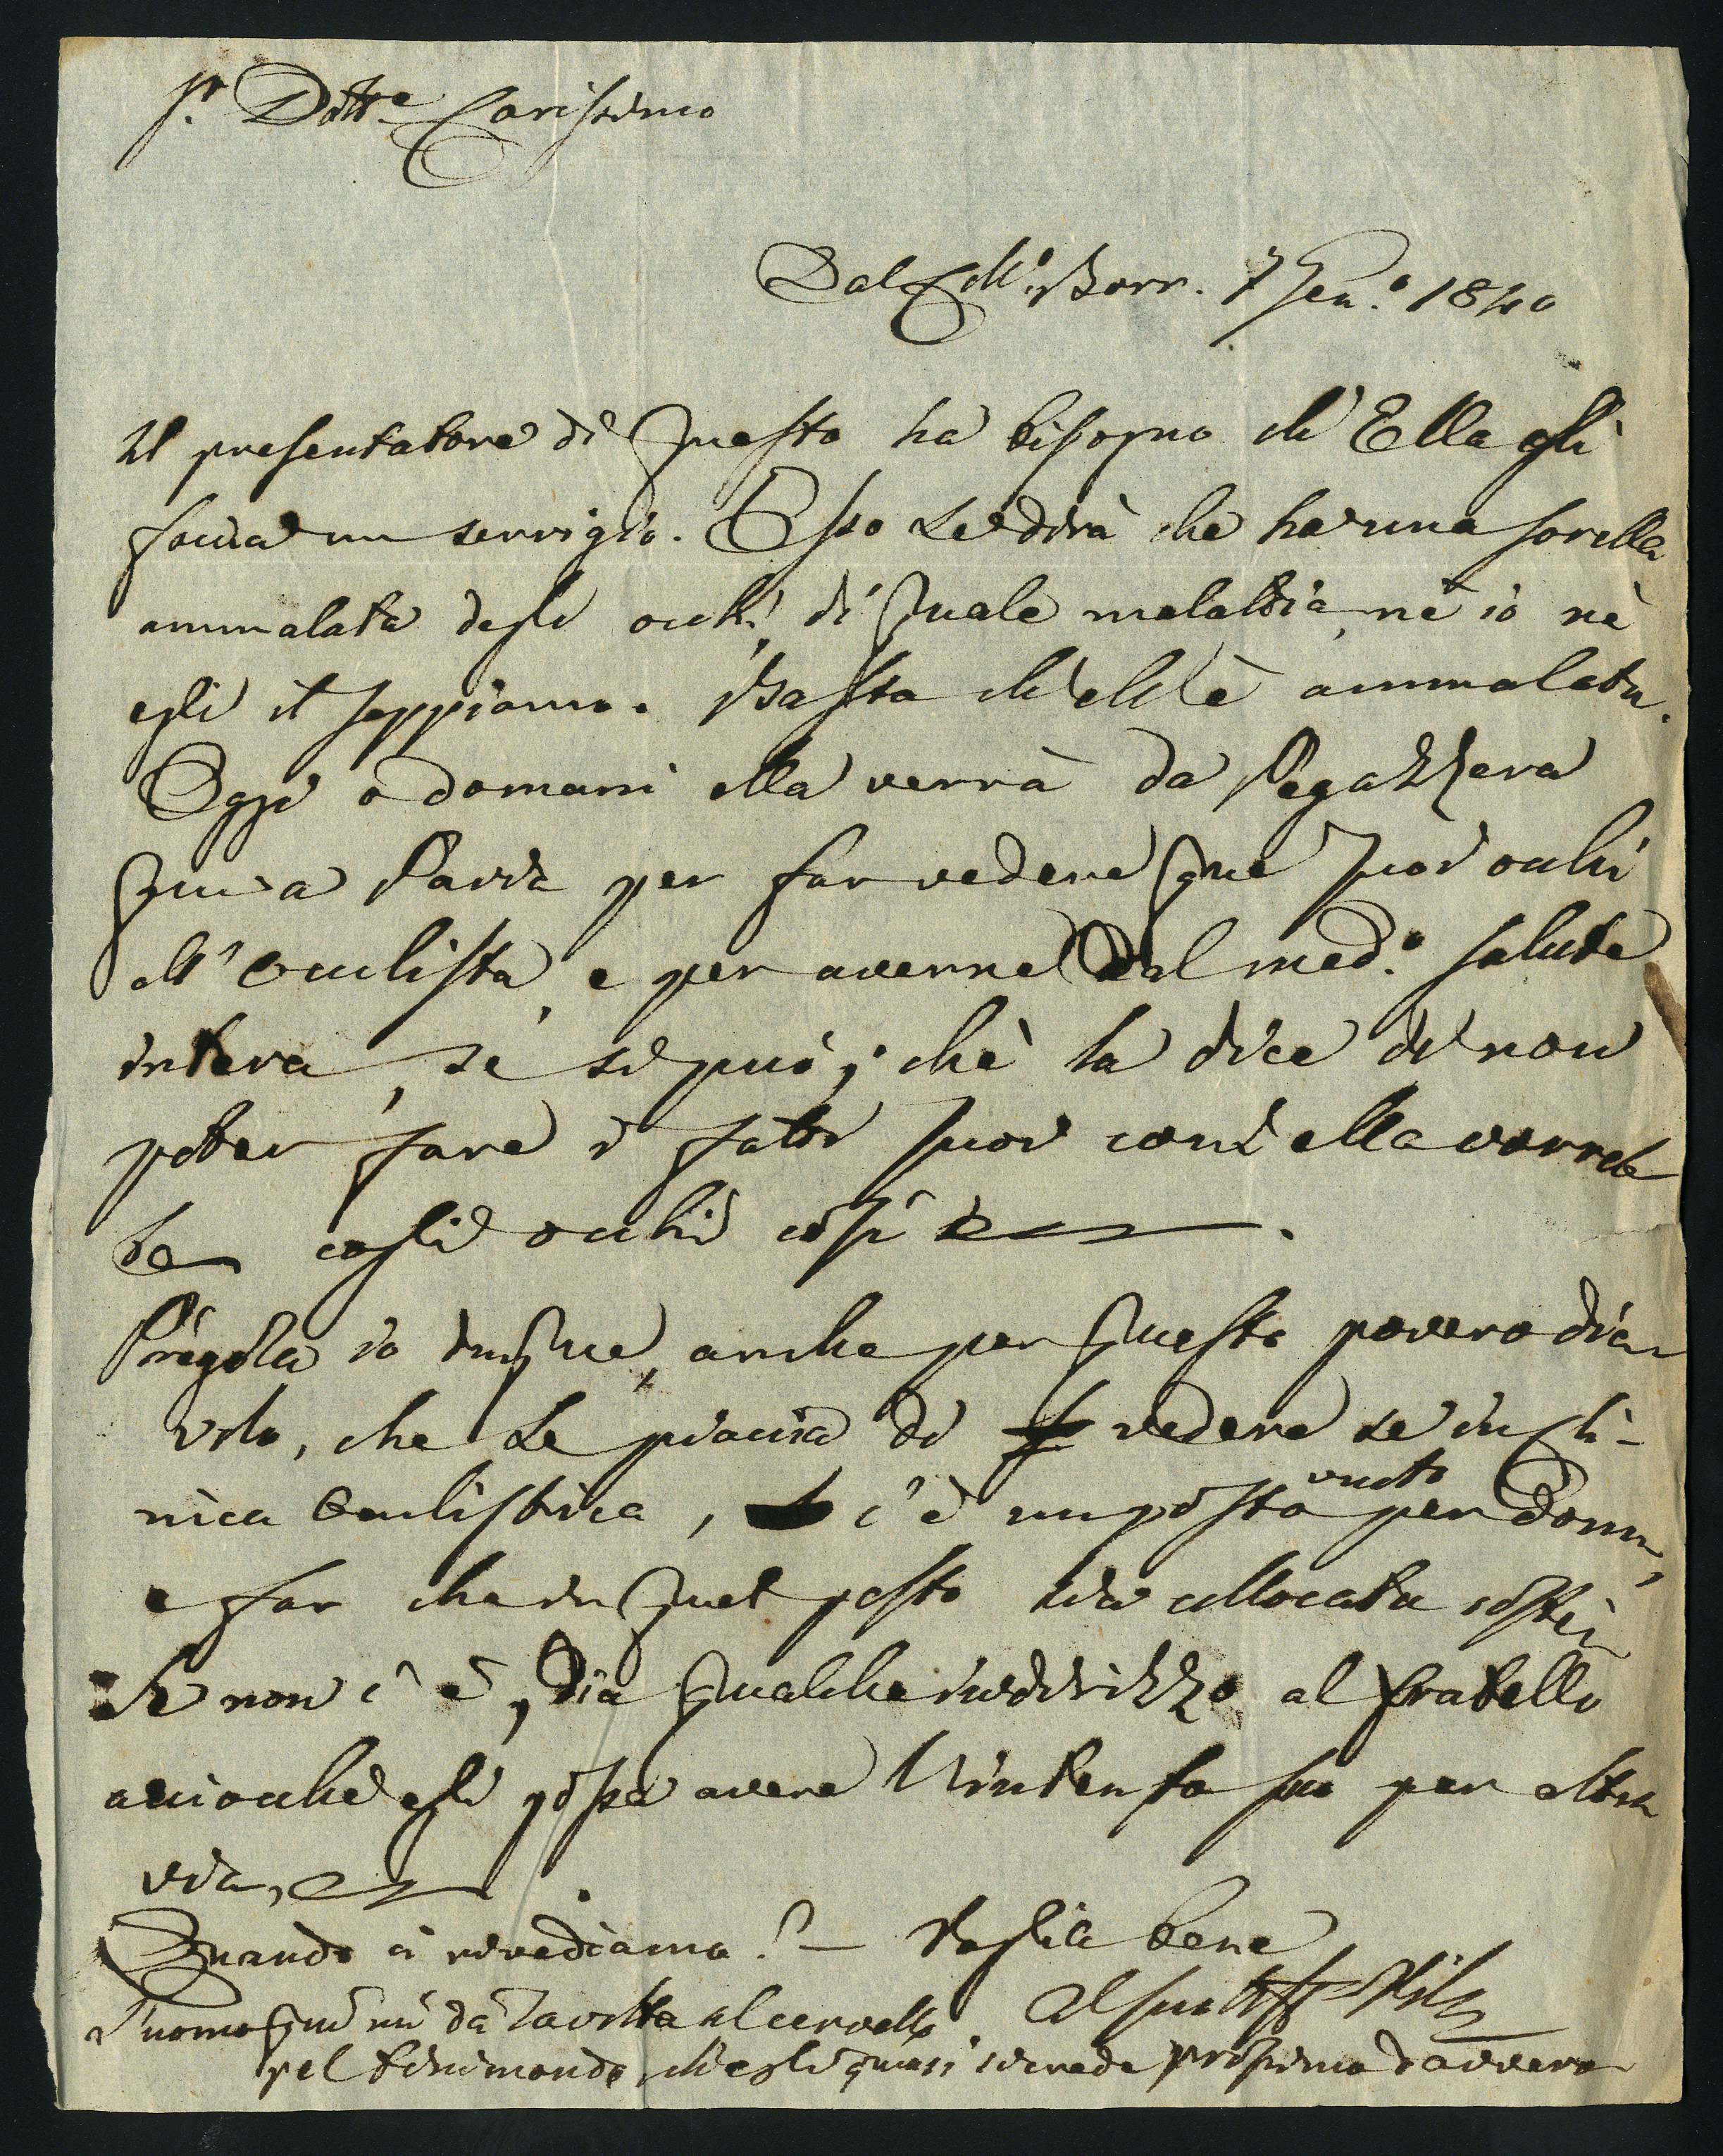 Sr. Dottre Carissimo
Dal Coll.o Borr. 7 Gen.o 1840
Il presentatore di questa ha bisogno ch'Ella gli
faccia un servigio. Esso Le dirà che ha una sorella
ammalata degli occhi, di quale malattia, nè io nè
egli il sappiamo. Basta ch'ell'è ammalata.
Oggi o domani ella verrà da Pegazzera
qui a Pavia per far vedere que' suoi occhi
all'Oculista, e per averne dal med.o salute
intera, se si può; chè la dice di non
poter fare i fatti suoi com'ella vorreb
be cogli occhi così
Pregola io dunque, anche per questo povero dia
volo, che Le piaccia di vedere se in Cli-
nica Oculistica, c'è un posto vuoto per donna,
e far che in quel posto sia collocata costei
Se non c'è, dia qualche indirizzo al fratello
acciocchè egli possa avere l'intento suo per altra
via,
Quando ci rivediamo? — Voglia bene
Al suo aff
L'uomo qui mi dà la volta al cervello
pel finimondo, ch'egli quasi si crede prossimo davvero